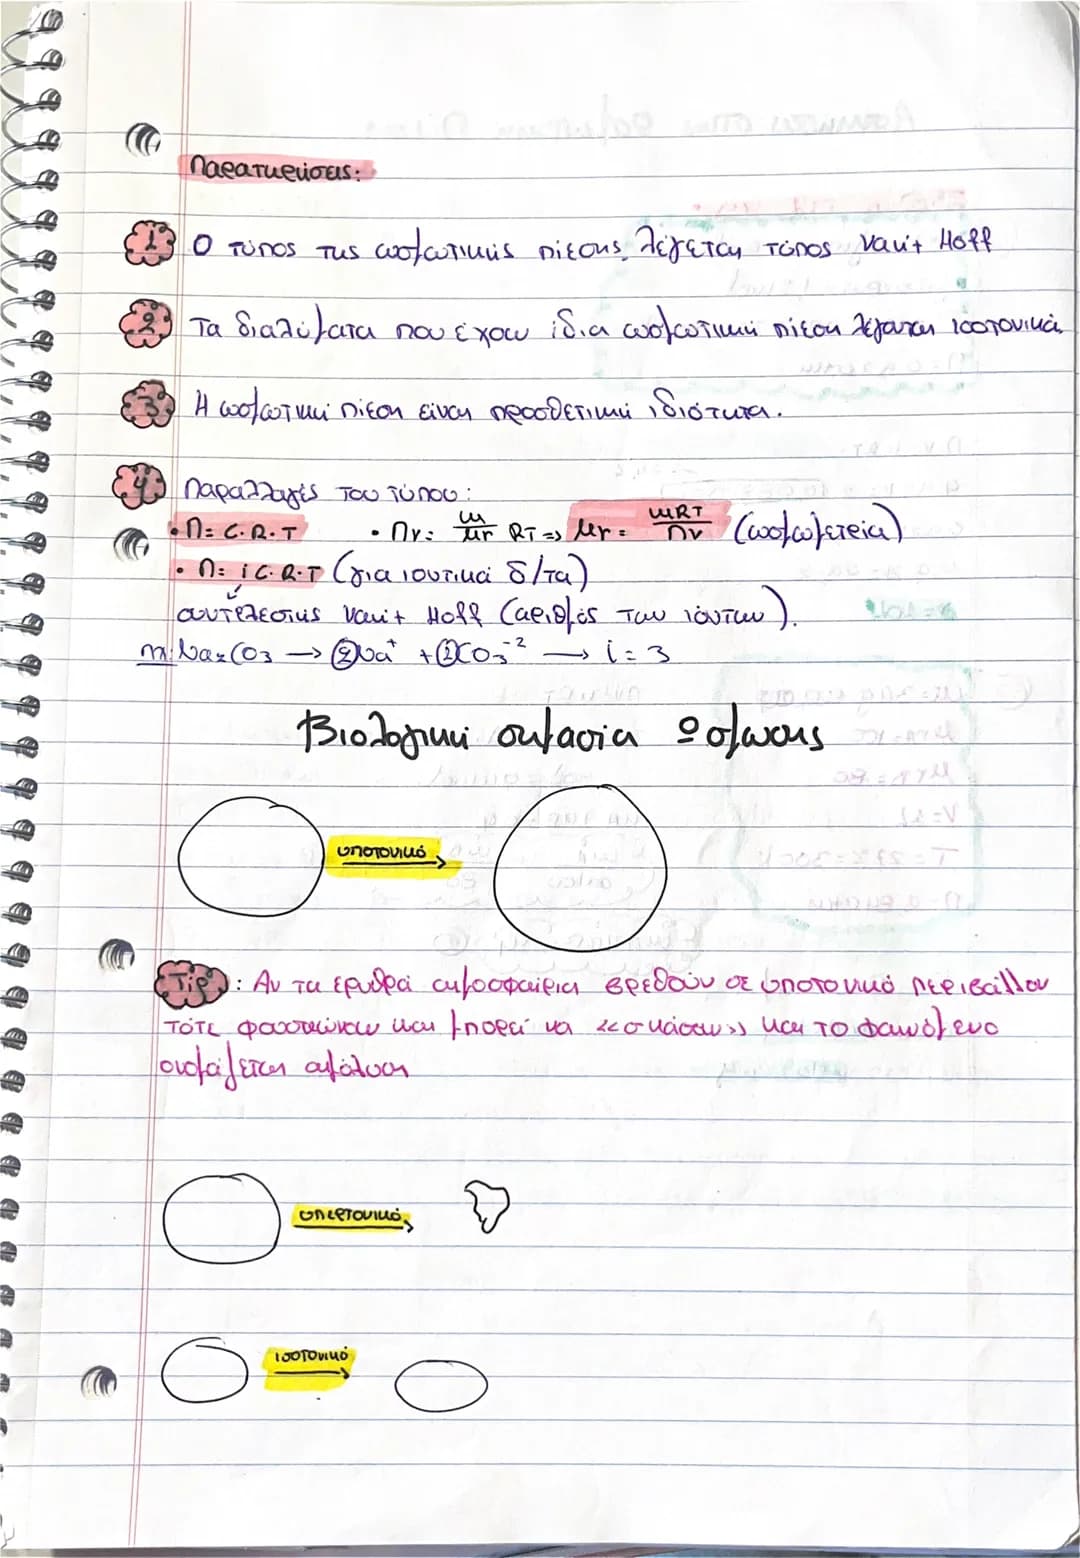 Παρατηρήσεις:
1 Ο τύπος της ωσμωτικής πίεσης λέγεται τύπος Van't Hoff
2 Τα διαλύματα που έχουν ίδια ωσμωτική πίεση λέγονται ισοτονικά
3 Η ωσμωτική πίεση είναι προσθετική ιδιότητα.
4 Παραλλαγές του τύπου:
• Π= C.R.T • Πv= m/Mr RT => Mr = mRT/Πv (ωσμωμετρία)
• Π= i C.R.T (για ιοντικά δ/τα)
συντελεστής Van't Hoff (αριθμός των ιόντων).
πχ Na₂CO₃ → ②Na⁺ + ①CO₃⁻² → i = 3
Βιολογική σημασία Ώσμωσης
υποτονικό
Tip: Αν τα ερυθρά αιμοσφαίρια βρεθούν σε υποτονικό περιβάλλον
τότε φουσκώνουν και μπορεί να <<σκάσουν>> και το φαινόμενο
ονομάζεται αιμόλυση
υπερτονικό
ισοτονικό